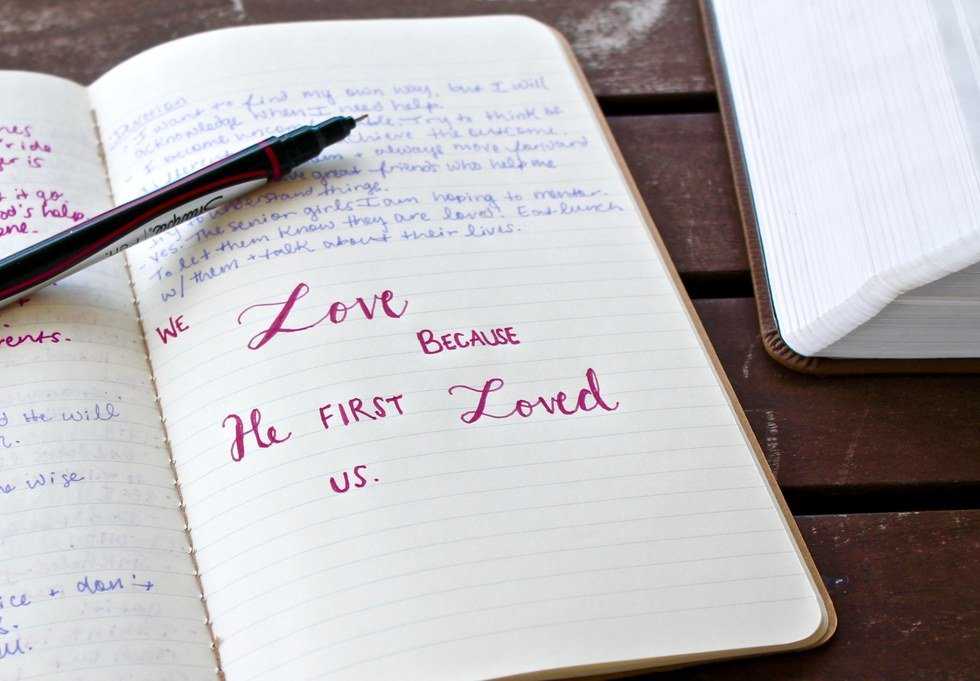 nes
ride
er is
it go
God's help
one.
rents.
d He will
r.
e wise
ice + don't
Devotion
- I want to find my own way, but I will
acknowledge when I need help.
- I become Try to think of
achieve the outcome.
+ always move forward
great friends who help me
try to understand things.
- Yes. The senior girls I am hoping to mentor.
To let them know they are loved. Eat lunch
w/ them + talk about their lives.
WE Love
BECAUSE
He FIRST Loved
US.